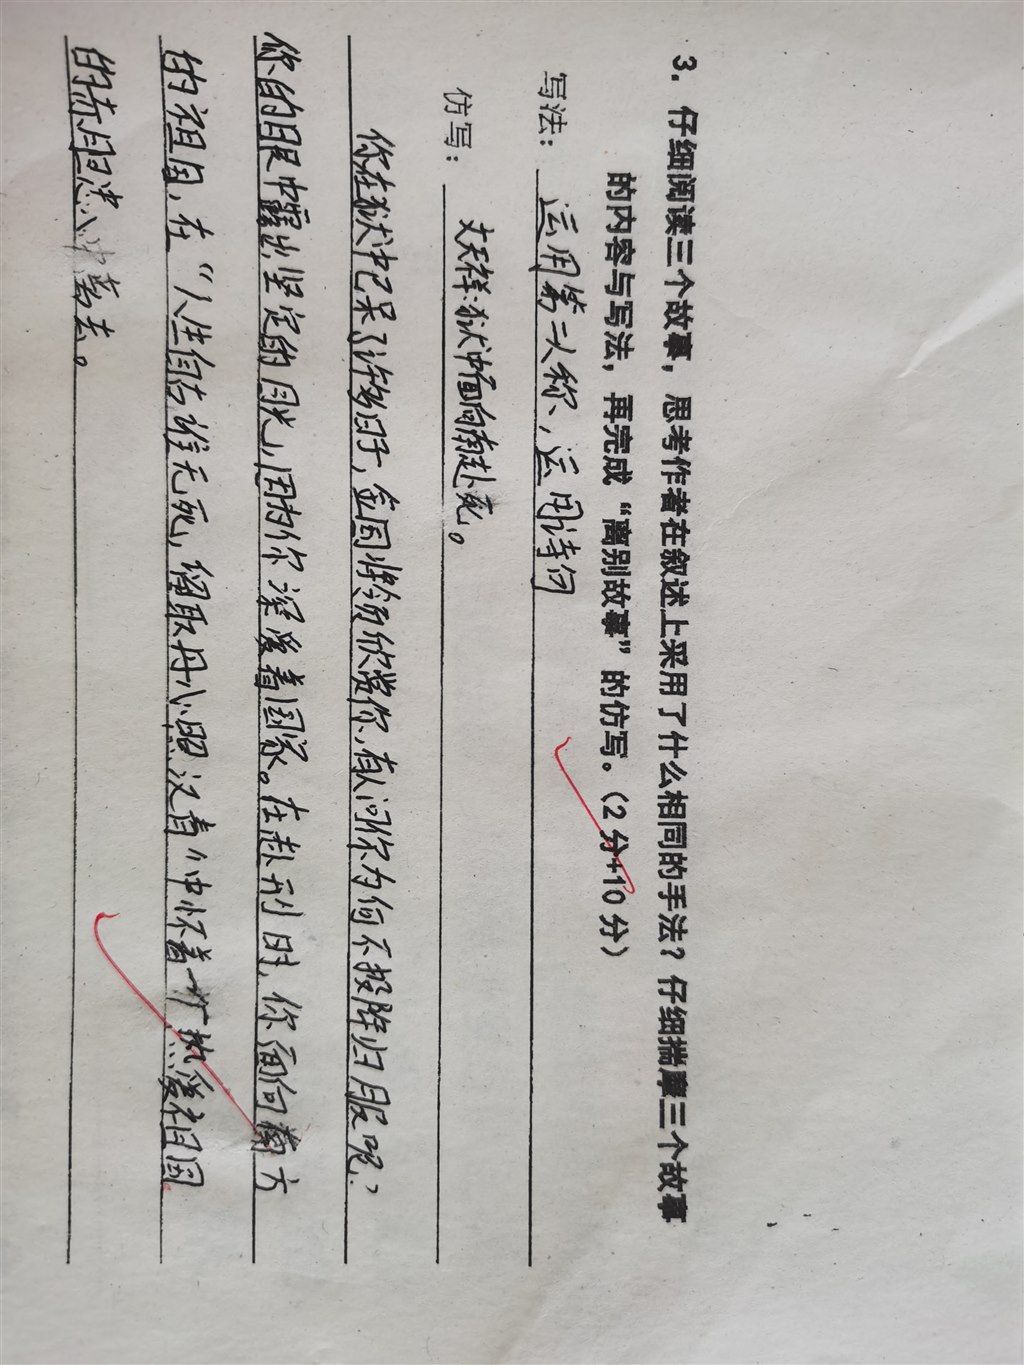 3. 仔细阅读三个故事，思考作者在叙述上采用了什么相同的手法？仔细揣摩三个故事
的内容与写法，再完成“离别故事”的仿写。（2分+10分）
写法：运用第二人称，运用诗句
仿写：文天祥狱中面向南赴死。
你在狱中已呆了许多日子，金国将领欣赏你，有人问你为何不投降归服呢？
你的眼中露出坚定的目光，因为你深爱着国家。在赴刑时，你面向南方
的祖国，在“人生自古谁无死，留取丹心照汗青”中怀着一片热爱祖国
的赤胆忠心中离去。